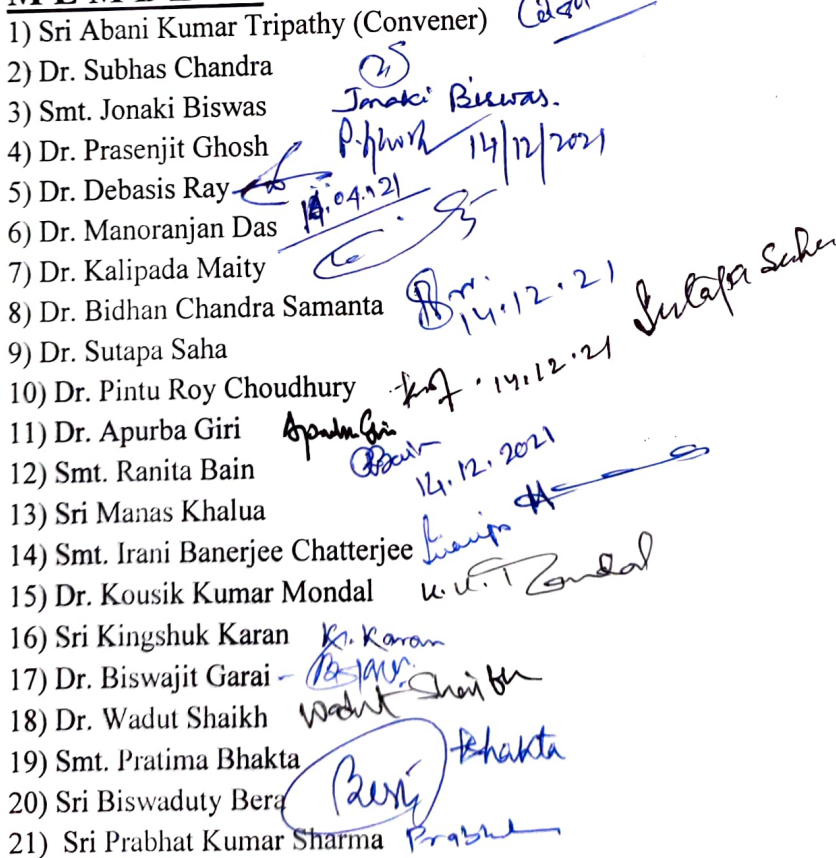 1) Sri Abani Kumar Tripathy (Convener)
2) Dr. Subhas Chandra
3) Smt. Jonaki Biswas Jonaki Biswas.
4) Dr. Prasenjit Ghosh P. Ghosh 14/12/2021
5) Dr. Debasis Ray .04.21
6) Dr. Manoranjan Das
7) Dr. Kalipada Maity
8) Dr. Bidhan Chandra Samanta 14.12.21
9) Dr. Sutapa Saha Sutapa Saha
10) Dr. Pintu Roy Choudhury 14.12.21
11) Dr. Apurba Giri Apurba Giri
12) Smt. Ranita Bain RBain 14.12.2021
13) Sri Manas Khalua
14) Smt. Irani Banerjee Chatterjee
15) Dr. Kousik Kumar Mondal K.K. Mondal
16) Sri Kingshuk Karan K. Karan
17) Dr. Biswajit Garai -
18) Dr. Wadut Shaikh Wadut Shaikh
19) Smt. Pratima Bhakta Bhakta
20) Sri Biswaduty Bera
21) Sri Prabhat Kumar Sharma